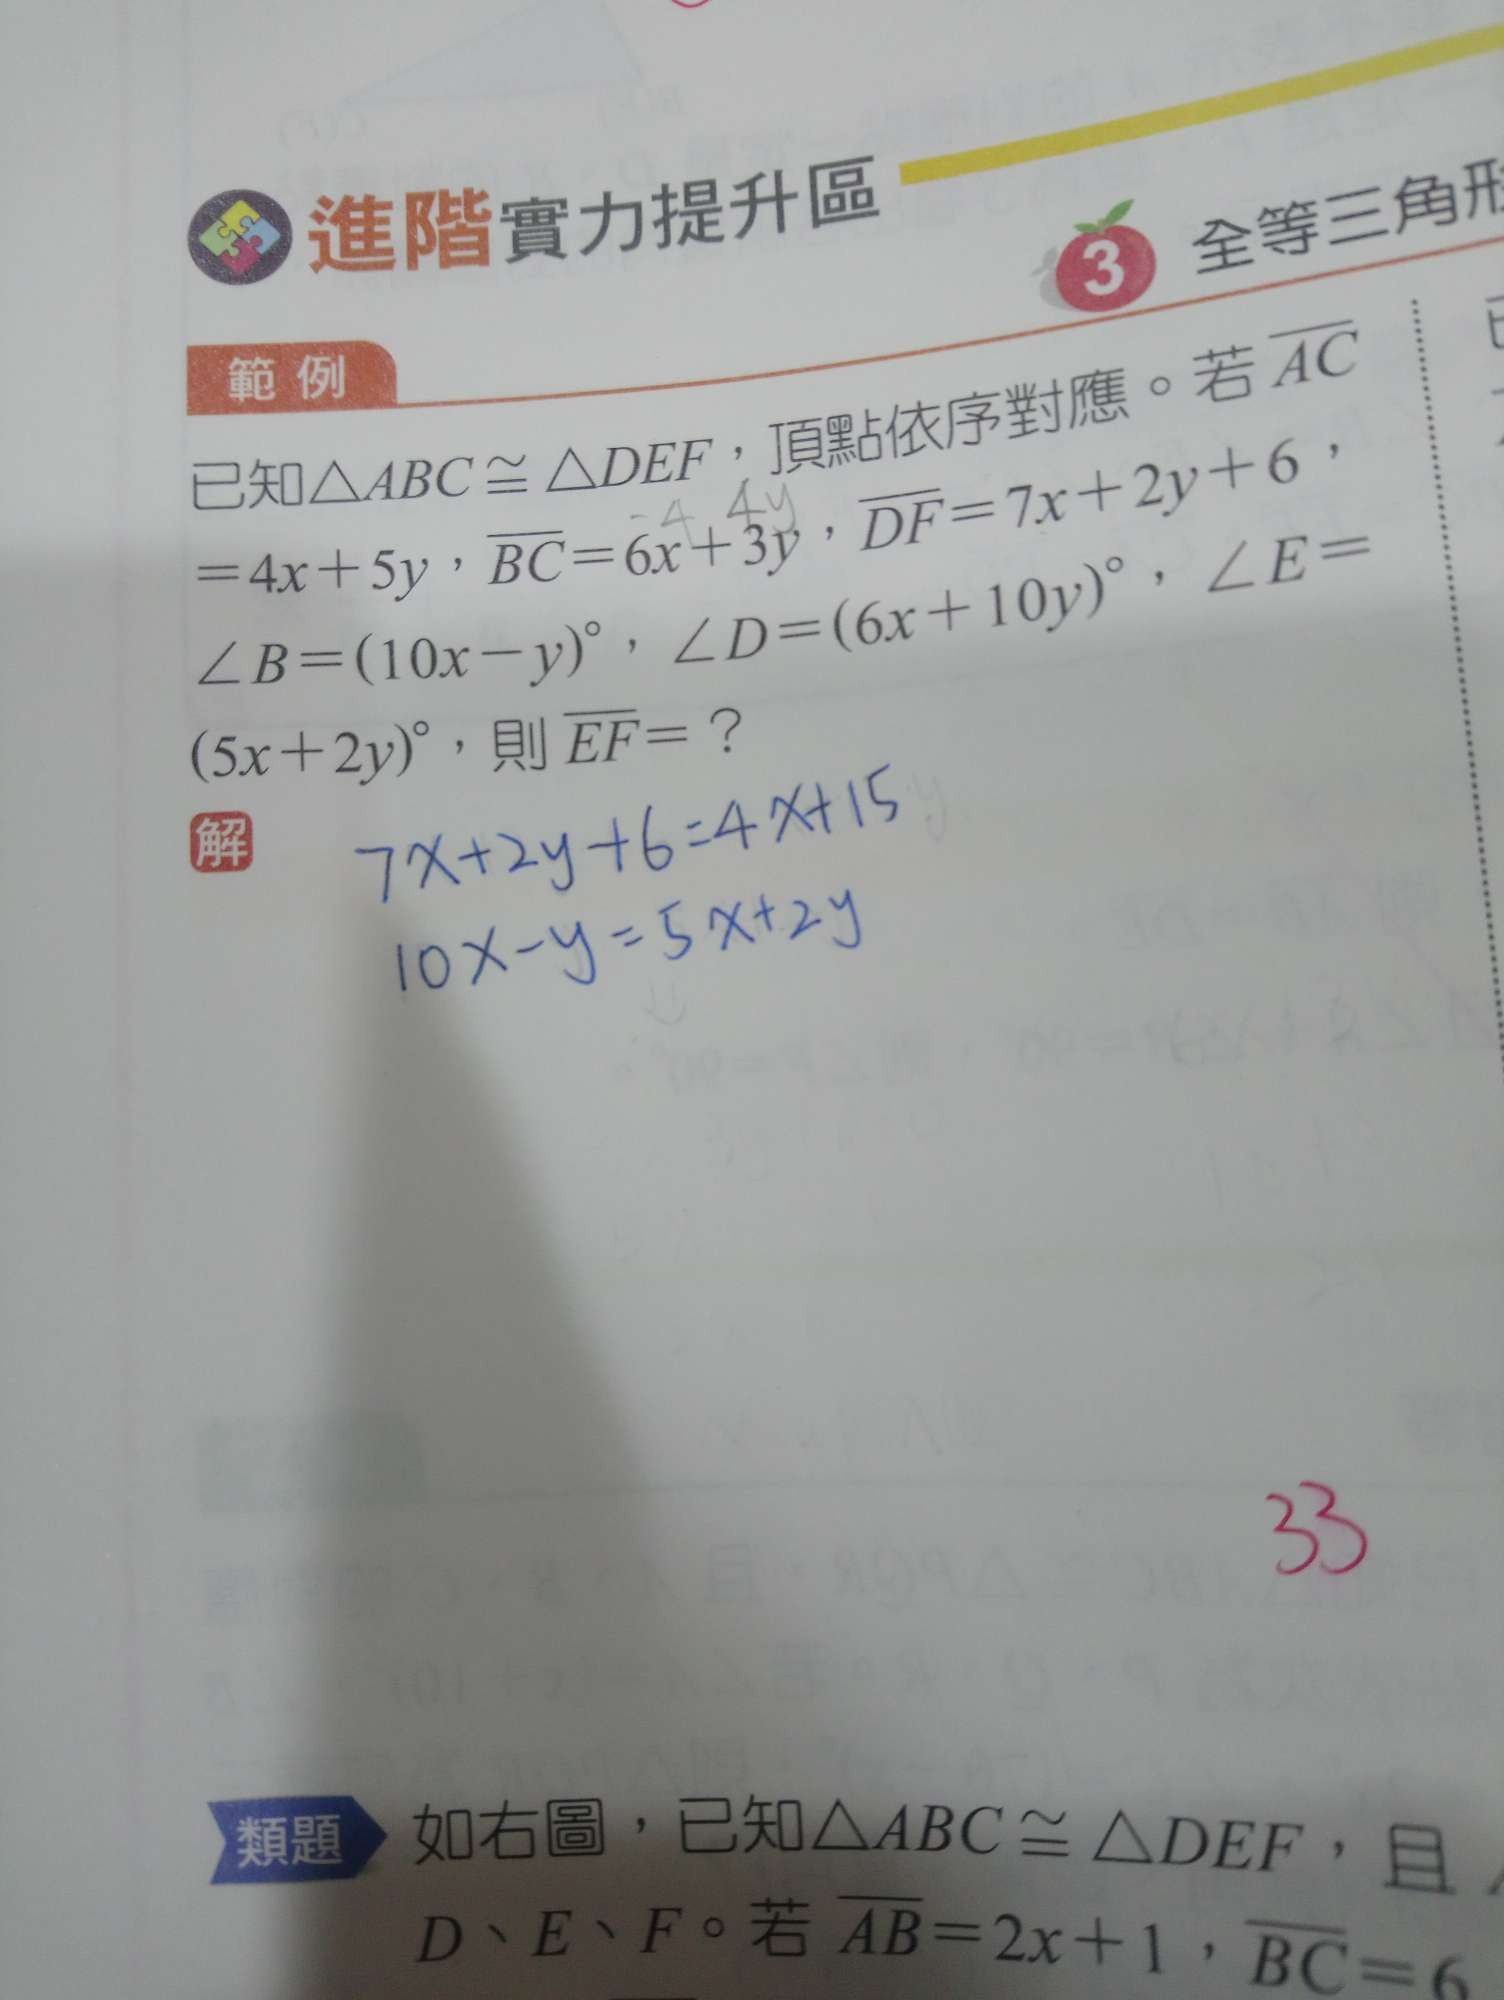 進階實力提升區
3 全等三角形
範例
已知△ABC≅△DEF，頂點依序對應。若 AC
=4x+5y，BC=6x+3y，DF=7x+2y+6，
-4 4y
∠B=(10x-y)°，∠D=(6x+10y)°，∠E=
(5x+2y)°，則 EF=？
解
7x+2y+6=4x+15
10x-y=5x+2y
33
類題 如右圖，已知△ABC≅△DEF，且
D、E、F。若 AB=2x+1，BC=6